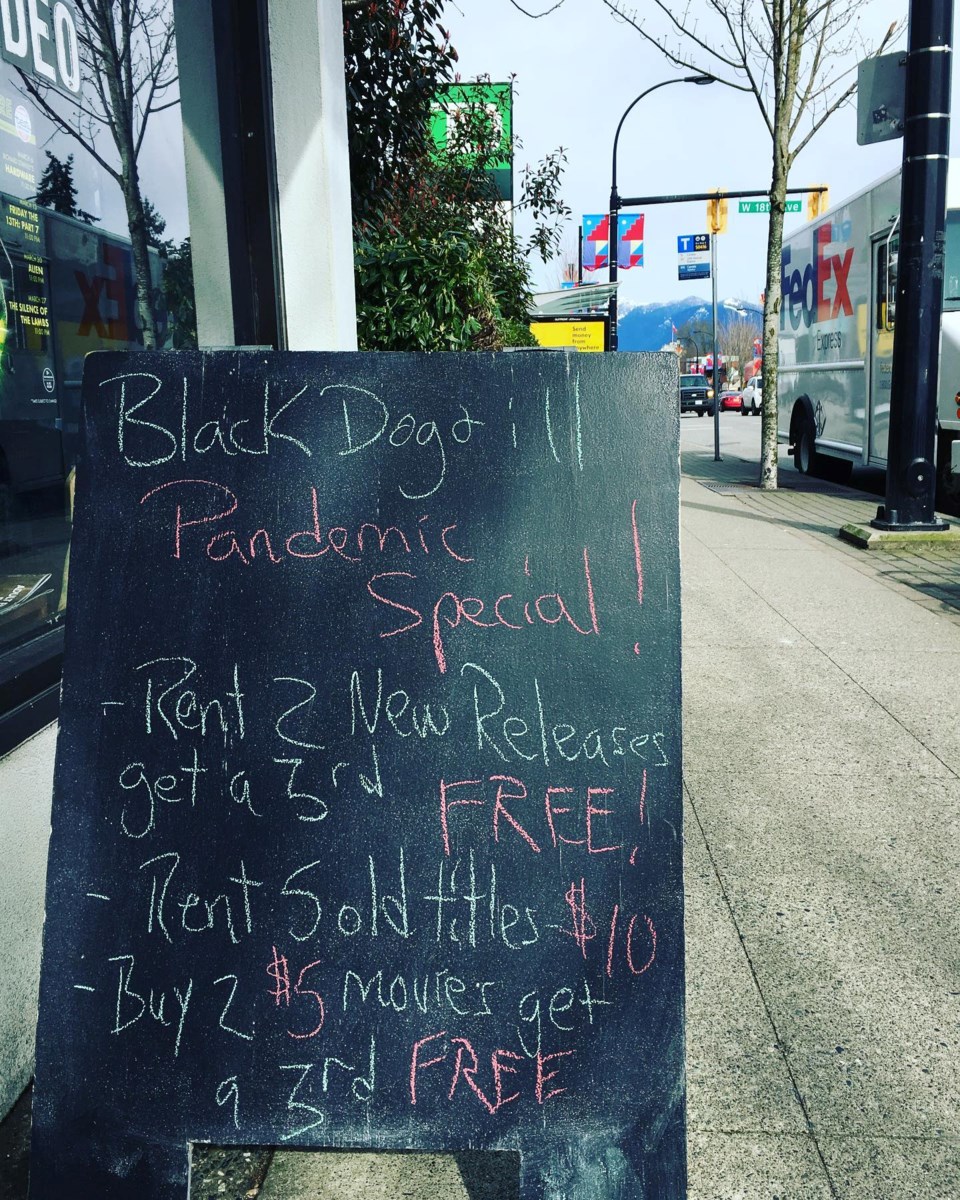 DEO
HARDWARE
FRIDAY THE
13TH: PART 7
ALIEN
MARCH 27
THE SILENCE OF
THE LAMBS
W 18th Ave
T
FedEx
Express
Send
money
from
Black Dog ill
Pandemic
Special!
- Rent 2 New Releases
get a 3rd FREE!
- Rent 5 old titles $10
- Buy 2 $5 movies get
a 3rd FREE